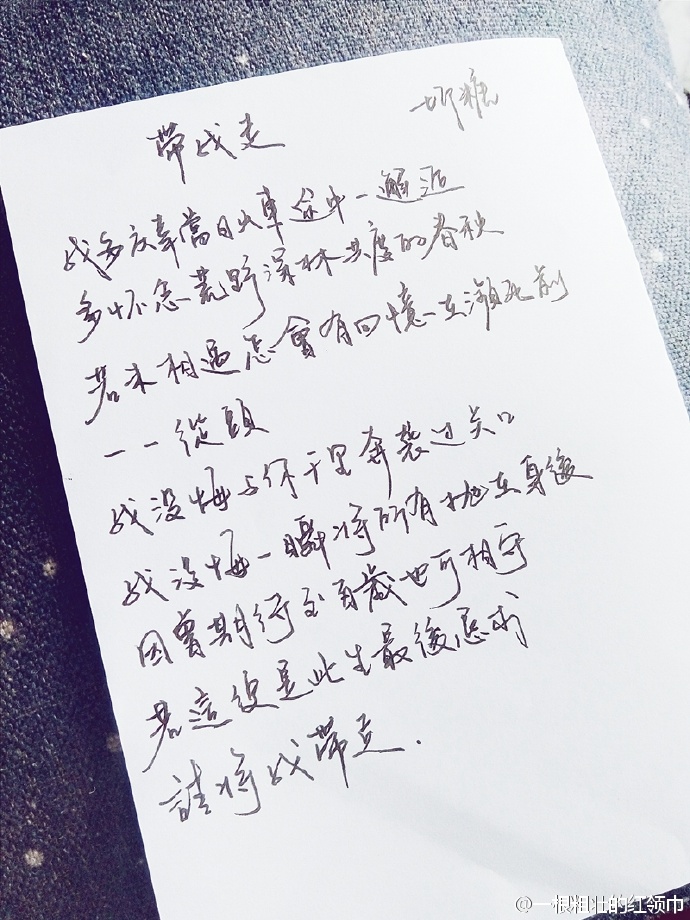 带我走
我多庆幸當日火車途中一邂逅
多怀念荒野深林共度的春秋
若未相遇怎會有回憶在瀕死前
一一從頭
我没悔与你千里奔袭过关口
我没悔一瞬将所有抛在身後
因曾期待至百歲也可相守
若這便是此生最後恳求
請将我帶走.
@一根粗壮的红领巾